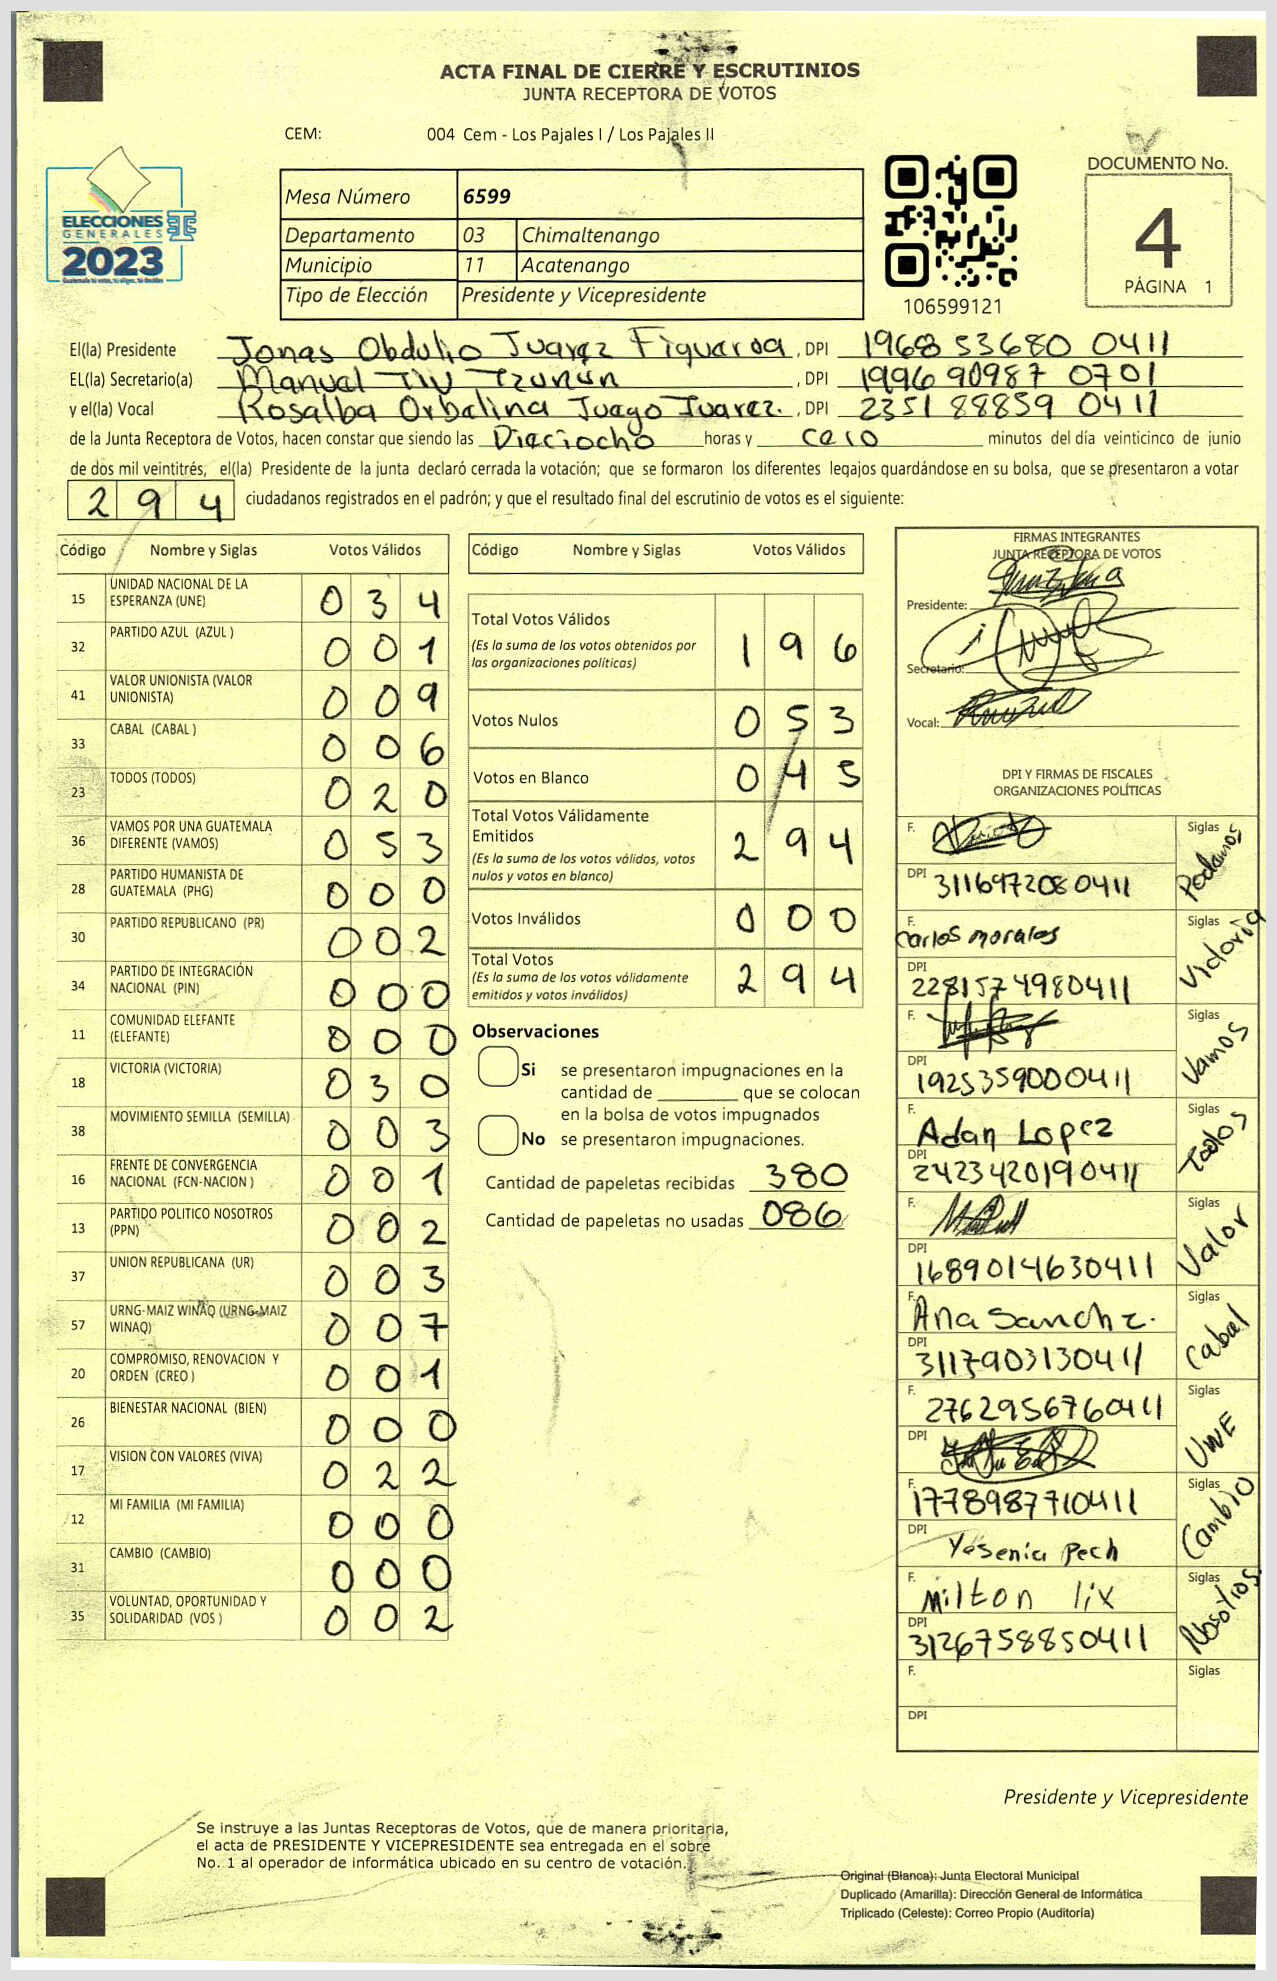 ACTA FINAL DE CIERRE Y ESCRUTINIOS
JUNTA RECEPTORA DE VOTOS
CEM: 004 Cem - Los Pajales I / Los Pajales II
ELECCIONES
GENERALES
2023
Mesa Número 6599
Departamento 03 Chimaltenango
Municipio 11 Acatenango
Tipo de Elección Presidente y Vicepresidente
106599121
DOCUMENTO No.
4
PÁGINA 1
El(la) Presidente Jonas Obdulio Juarez Figueroa, DPI 1968 53680 0411
EL(la) Secretario(a) Manuel Tzunún, DPI 1996 90987 0701
y el(la) Vocal Rosalba Orbelina Juego Juarez., DPI 2351 88859 0411
de la Junta Receptora de Votos, hacen constar que siendo las Dieciocho horas y cero minutos del día veinticinco de junio
de dos mil veintitrés, el(la) Presidente de la junta declaró cerrada la votación; que se formaron los diferentes legajos guardándose en su bolsa, que se presentaron a votar
294 ciudadanos registrados en el padrón; y que el resultado final del escrutinio de votos es el siguiente:
Código Nombre y Siglas Votos Válidos
15 UNIDAD NACIONAL DE LA ESPERANZA (UNE) 034
32 PARTIDO AZUL (AZUL ) 001
41 VALOR UNIONISTA (VALOR UNIONISTA) 009
33 CABAL (CABAL ) 006
23 TODOS (TODOS) 020
36 VAMOS POR UNA GUATEMALA DIFERENTE (VAMOS) 053
28 PARTIDO HUMANISTA DE GUATEMALA (PHG) 000
30 PARTIDO REPUBLICANO (PR) 002
34 PARTIDO DE INTEGRACIÓN NACIONAL (PIN) 000
11 COMUNIDAD ELEFANTE (ELEFANTE) 000
18 VICTORIA (VICTORIA) 030
38 MOVIMIENTO SEMILLA (SEMILLA) 003
16 FRENTE DE CONVERGENCIA NACIONAL (FCN-NACION ) 001
13 PARTIDO POLITICO NOSOTROS (PPN) 002
37 UNION REPUBLICANA (UR) 003
57 URNG-MAIZ WINAQ (URNG-MAIZ WINAQ) 007
20 COMPROMISO, RENOVACION Y ORDEN (CREO ) 001
26 BIENESTAR NACIONAL (BIEN) 000
17 VISION CON VALORES (VIVA) 022
12 MI FAMILIA (MI FAMILIA) 000
31 CAMBIO (CAMBIO) 000
35 VOLUNTAD, OPORTUNIDAD Y SOLIDARIDAD (VOS ) 002
Código Nombre y Siglas Votos Válidos
Total Votos Válidos 196
(Es la suma de los votos obtenidos por
las organizaciones políticas)
Votos Nulos 053
Votos en Blanco 045
Total Votos Válidamente
Emitidos 294
(Es la suma de los votos válidos, votos
nulos y votos en blanco)
Votos Inválidos 000
Total Votos 294
(Es la suma de los votos válidamente
emitidos y votos inválidos)
Observaciones
Si se presentaron impugnaciones en la
cantidad de ________ que se colocan
en la bolsa de votos impugnados
No se presentaron impugnaciones.
Cantidad de papeletas recibidas 380
Cantidad de papeletas no usadas 086
FIRMAS INTEGRANTES
JUNTA RECEPTORA DE VOTOS
Presidente:
Secretario:
Vocal:
DPI Y FIRMAS DE FISCALES
ORGANIZACIONES POLÍTICAS
F. Siglas Podemos
DPI 3116972080411
F. Carlos Morales Siglas Victoria
DPI 2281574980411
F. Siglas Vamos
DPI 1925359000411
F. Adan Lopez Siglas Todos
DPI 2423420190411
F. Siglas Valor
DPI 1689014630411
F. Ana Sanchz. Siglas Cabal
DPI 3117903130411
F. 2762956760411 Siglas UNE
DPI
F. 1778987710411 Siglas Cambio
DPI Yesenia Pech
F. Milton lix Siglas Nosotros
DPI 3126758850411
F. Siglas
DPI
Presidente y Vicepresidente
Se instruye a las Juntas Receptoras de Votos, que de manera prioritaria,
el acta de PRESIDENTE Y VICEPRESIDENTE sea entregada en el sobre
No. 1 al operador de informática ubicado en su centro de votación.
Original (Blanca): Junta Electoral Municipal
Duplicado (Amarilla): Dirección General de Informática
Triplicado (Celeste): Correo Propio (Auditoría)